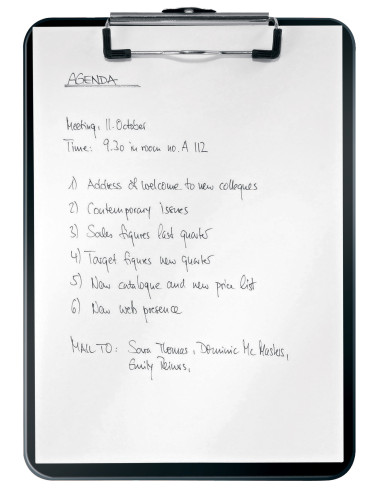 AGENDA
Meeting, 11. October
Time: 9.30 in room no. A 112
1) Address of welcome to new collegues
2) Contemporary Issues
3) Sales figures last quarter
4) Target figures new quarter
5) New catalogue and new price list
6) New web presence
MAIL TO: Sara Thomas, Dominic Mc Masters,
Emily